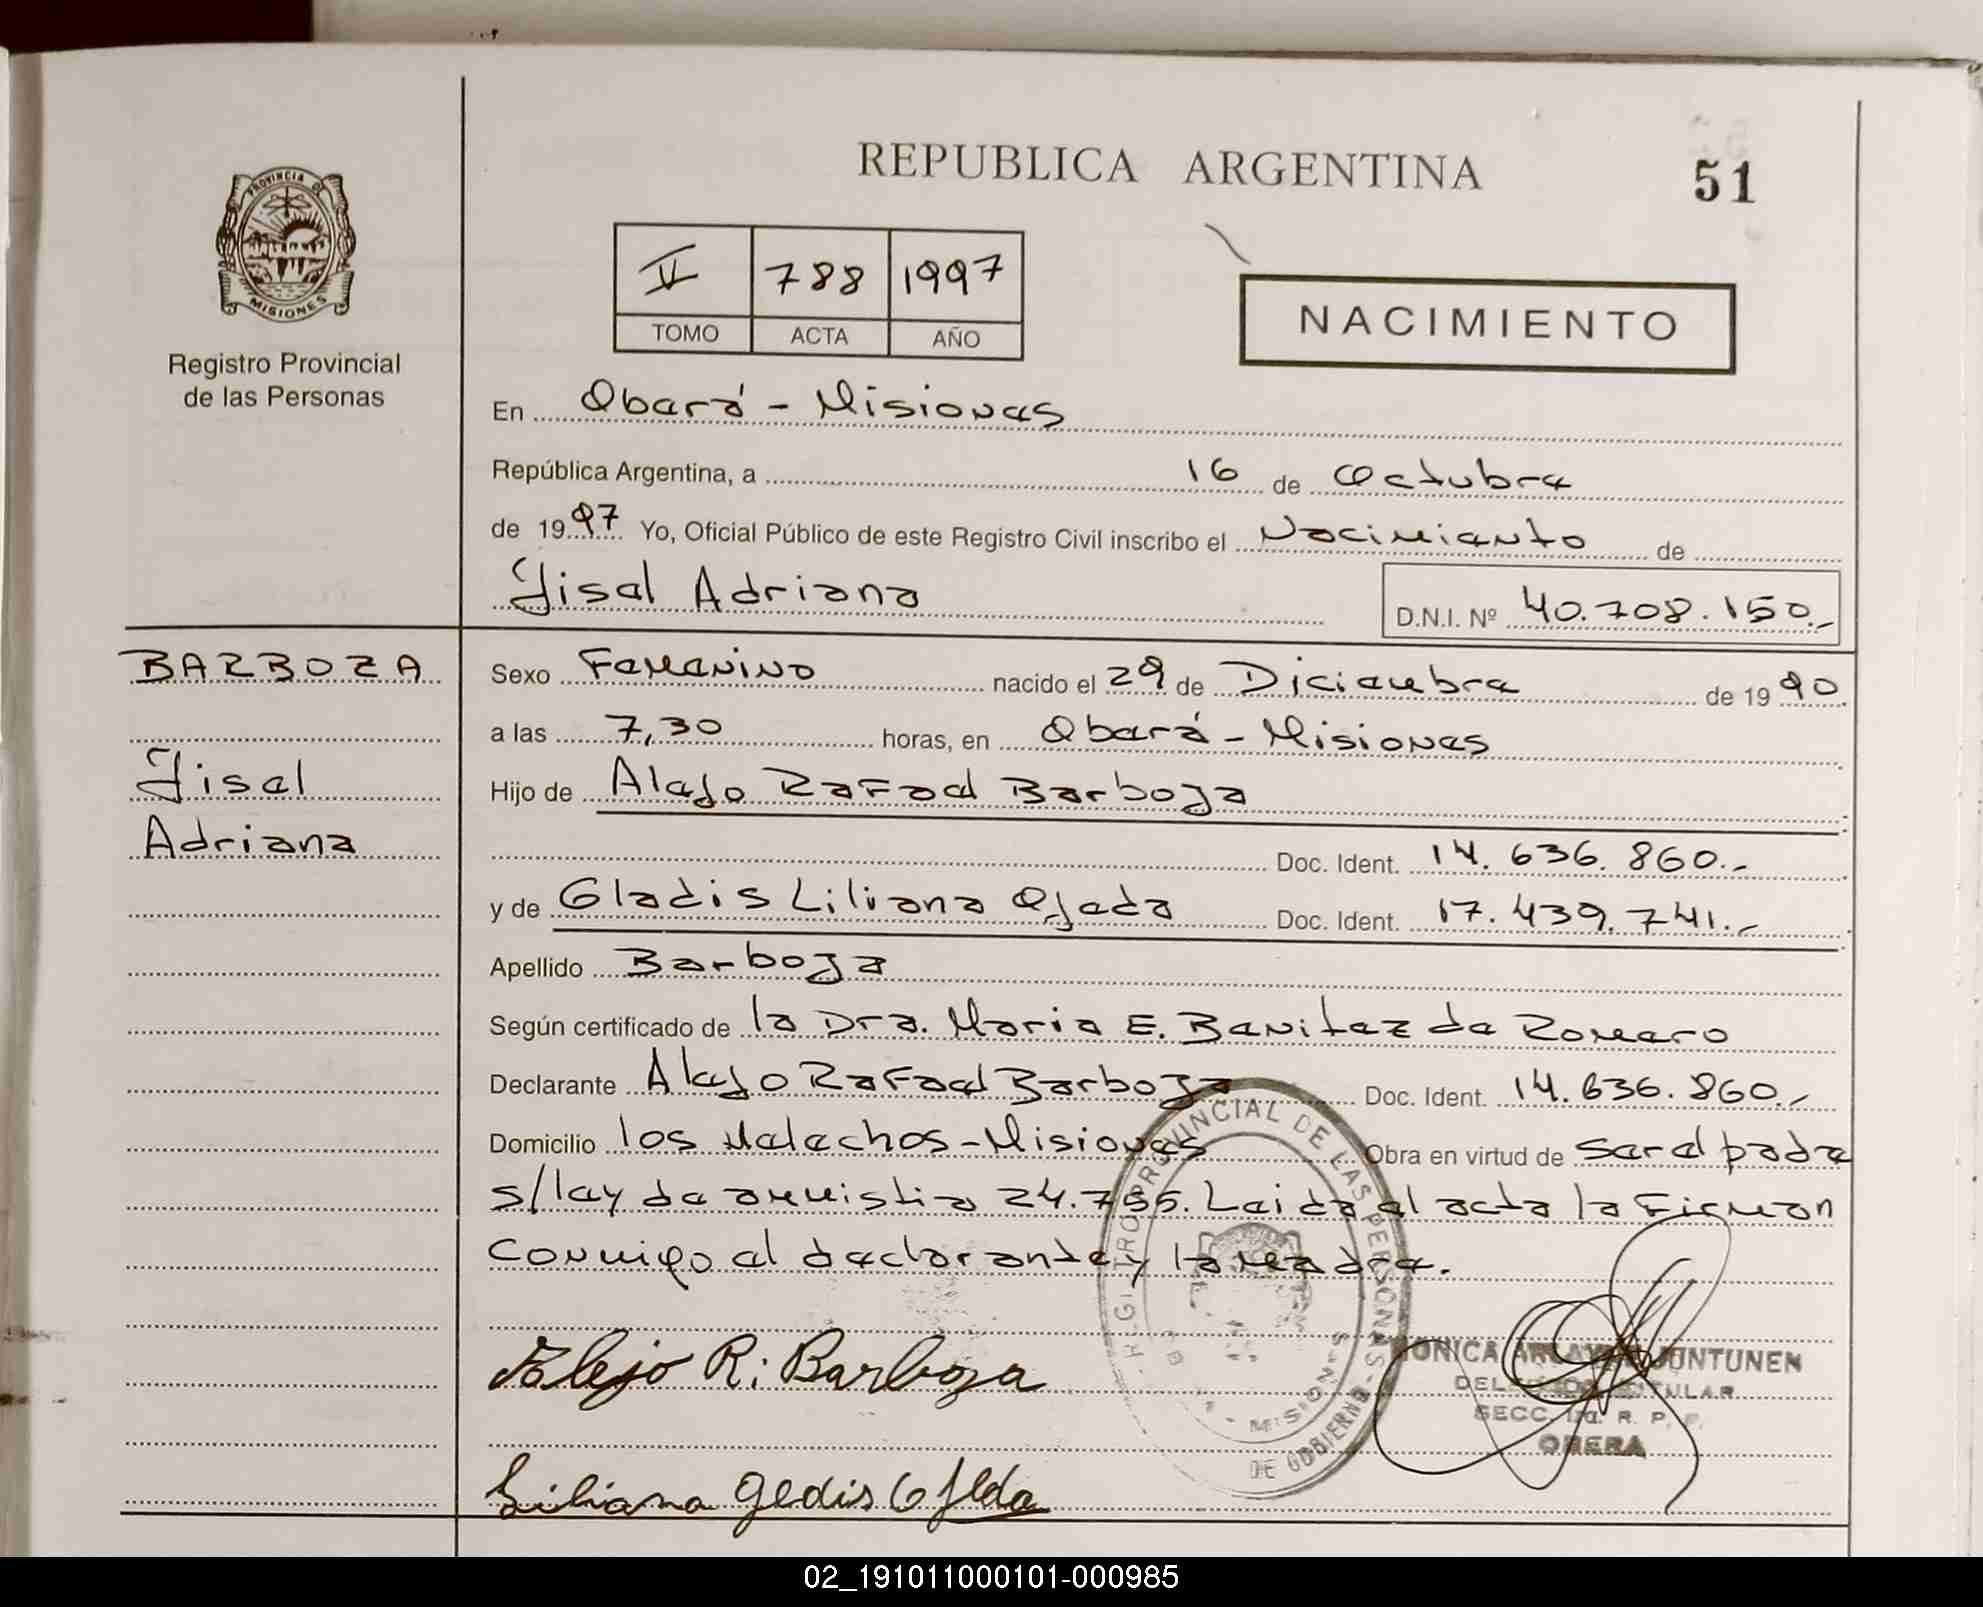 REPUBLICA ARGENTINA
51
PROVINCIA DE
MISIONES
Registro Provincial
de las Personas
V 788 1997
TOMO ACTA AÑO
NACIMIENTO
En Oberá - Misiones
República Argentina, a 16 de Octubre
de 1997 Yo, Oficial Público de este Registro Civil inscribo el Nacimiento de
Jisel Adriana D.N.I. Nº 40.708.150.-
BARBOZA
Jisel
Adriana
Sexo Femenino nacido el 29 de Diciembre de 1990
a las 7,30 horas, en Oberá - Misiones
Hijo de Alejo Rafael Barboza
Doc. Ident. 14.636.860.-
y de Gladis Liliana Ojeda Doc. Ident. 17.439.741.-
Apellido Barboza
Según certificado de la Dra. Maria E. Benitez de Romero
Declarante Alejo Rafael Barboza Doc. Ident. 14.636.860.-
Domicilio los Helechos - Misiones Obra en virtud de ser el padre
s/ley de amnistia 24.755. Leida el acta la Firman
Conmigo el declarante y la madre.
Alejo R. Barboza
Liliana gedis
PROVINCIAL DE LAS PERSONAS
MISIONES
DE GOBIERNO
MONICA JUNTUNEN
TITULAR
SECC. R. P.
OBERA
02_191011000101-000985